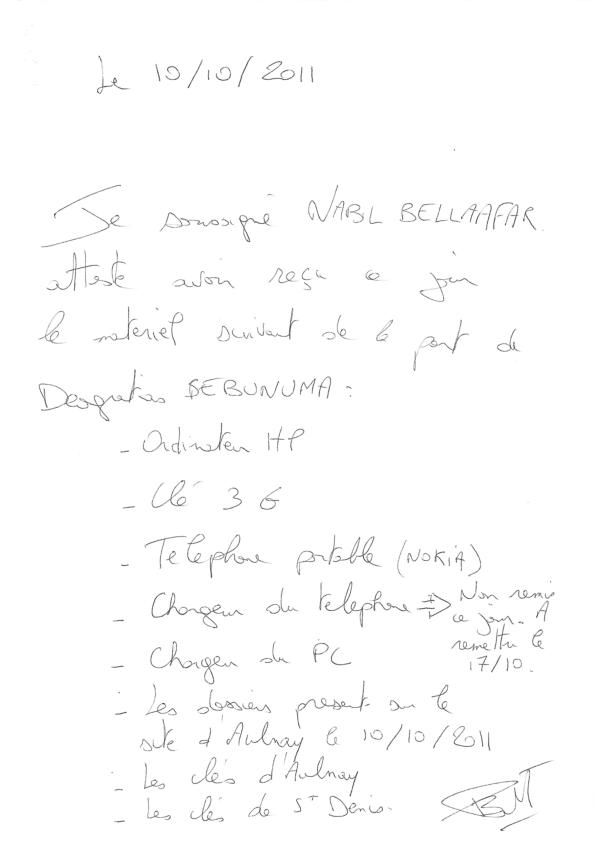 Le 10/10/2011
Je soussigné NABL BELLAAFAR
atteste avoir reçu ce jour
le matériel suivant de la part de
Deogratias SEBUNUMA :
- Ordinateur HP
- Clé 3 G
- Telephone portable (NOKIA)
- Chargeur du telephone => Non remis
ce jour. A
remettre le
17/10.
- Chargeur du PC
- Les dossiers present sur le
site d'Aulnay le 10/10/2011
- Les clés d'Aulnay
- Les clés de St Denis.